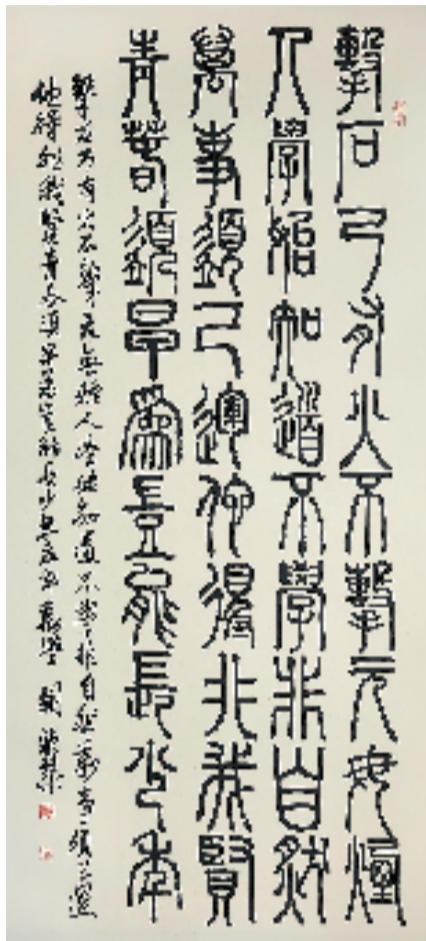 擊石乃有火不擊元無煙
人學始知道不學非自然
萬事須己運他得非我賢
青春須早爲豈能長少年
擊石乃有火不擊元無煙人學始知道不學非自然萬事須己運
他得非我賢青春須早爲豈能長少年